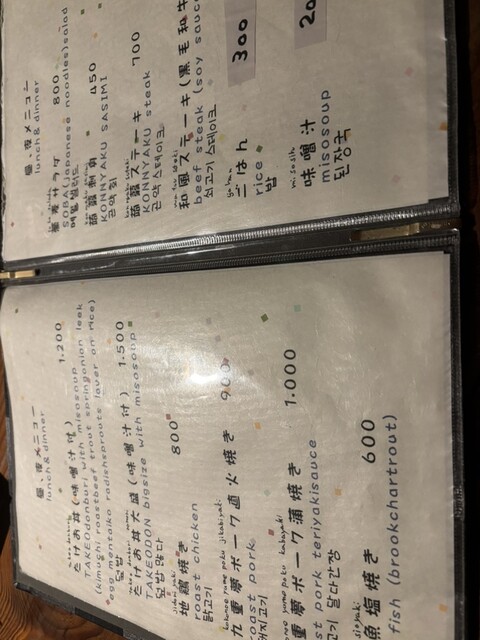 昼、夜メニュー
lunch & dinner
1.200
たけお丼(味噌汁付)
TAKEOdonburi with misosoup
(kimuchi roastbeef trout springonion leek
egg mentaiko radishsprouts laver on rice)
덮밥
たけお丼大盛(味噌汁付) 1.500
TAKEODON bigsize with misosoup
덮밥 많다
jidori yaki
地鶏焼き 800
roast chicken
닭고기
九重夢ポーク直火焼き 900
roast pork
九重夢ポーク蒲焼き 1.000
pork teriyakisauce
魚塩焼き 600
fish (brookchartrout)
昼、夜メニュー
lunch & dinner
蕎麦サラダ 800
SOBA (japanese noodles) salad
메밀 샐러드
蒟蒻刺身 450
KONNYAKU SASIMI
곤약 회
蒟蒻ステーキ 700
KONNYAKU steak
곤약 스테이크
和風ステーキ(黒毛和牛
beef steak (soy sauce
쇠고기 스테이크
gohan
ごはん 300
rice
밥
misosiru
味噌汁 20
misosoup
된장국